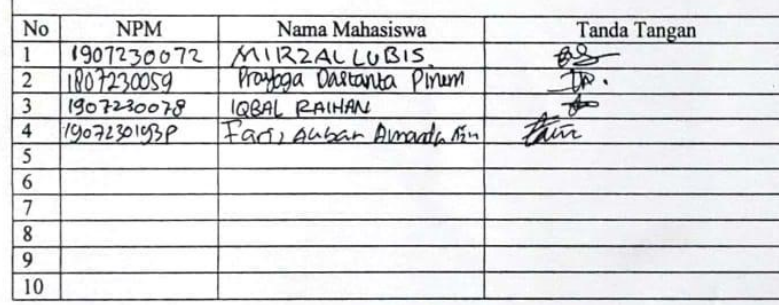 No NPM Nama Mahasiswa Tanda Tangan
1 1907230072 MIRZAL LUBIS.
2 1807230059 Prayoga Dastanta Pinem
3 1907230078 IQBAL RAIHAN
4 1907230193P Faris
5
6
7
8
9
10